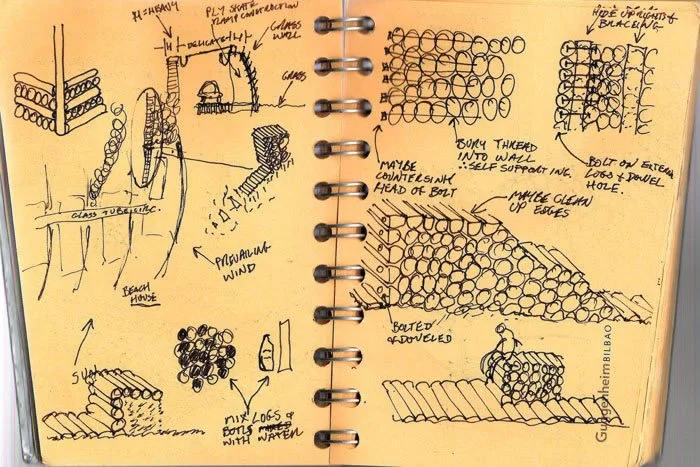 H=HEAVY
PLY SKATE
RAMP CONSTRUCTION
H
DELICATE
GRASS
WALL
GRASS
PREVAILING
WIND
BEACH
HOUSE
MIX LOGS &
WITH WATER
HIDE UPRIGHTS &
BRACKLING
BURY THREAD
INTO WALL
∴ SELF SUPPORTING.
MAYBE
COUNTERSINK
HEAD OF BOLT
BOLT ON EXTERN
LOGS & DOWEL
HOLE.
MAYBE CLEAN
UP EDGES
BOLTED
& DOWELED
GuggenheimBILBAO